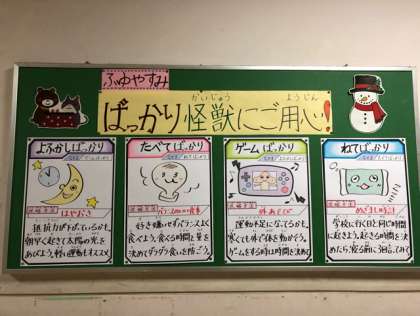 ふゆやすみ
ばっかり怪獣にご用心!
かいじゅう
ようじん
よふかしばっかり
はやおき
抵抗力が下がっているかも。
朝早く起きて太陽の光を
あびよう。軽い運動もオススメ
たべてばっかり
好き嫌いせずバランスよく
食べよう。食べる時間と量を
決めてダラダラ食いを防ごう。
ゲームばっかり
外あそび
運動不足になってるかも。
寒くても外で体を動かそう。
ゲームをする時は時間を決めて
ねてばっかり
めざまし時計
学校に行く日と同じ時間
に起きよう。起きる時間を決
めたら、寝る前に3回言ってみて